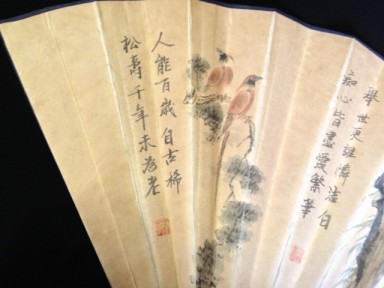 舉世更誰憐洁白
痴心皆盡愛繁華
人能百歲自古稀
松壽千年未為老